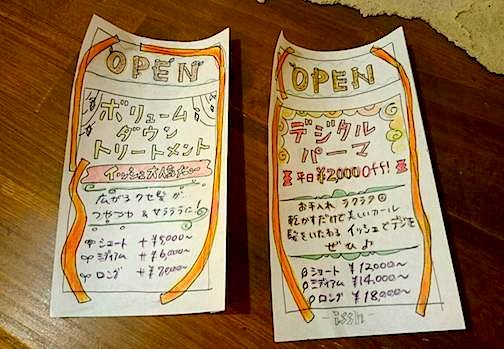 OPEN
ボリューム
ダウン
トリートメント
イッシュ大人気メニュー
広がるクセ髪が
つやつや & サラサラに!
ショート +¥5,000~
ミディアム +¥6,000~
ロング +¥7,000~
OPEN
デジタル
パーマ
平日¥2000off!
お手入れ ラクラク
乾かすだけで美しいカール
髪をいたわる イッシュでデジを
ぜひ♪
ショート ¥12,000~
ミディアム ¥14,000~
ロング ¥18,000~
-issh-